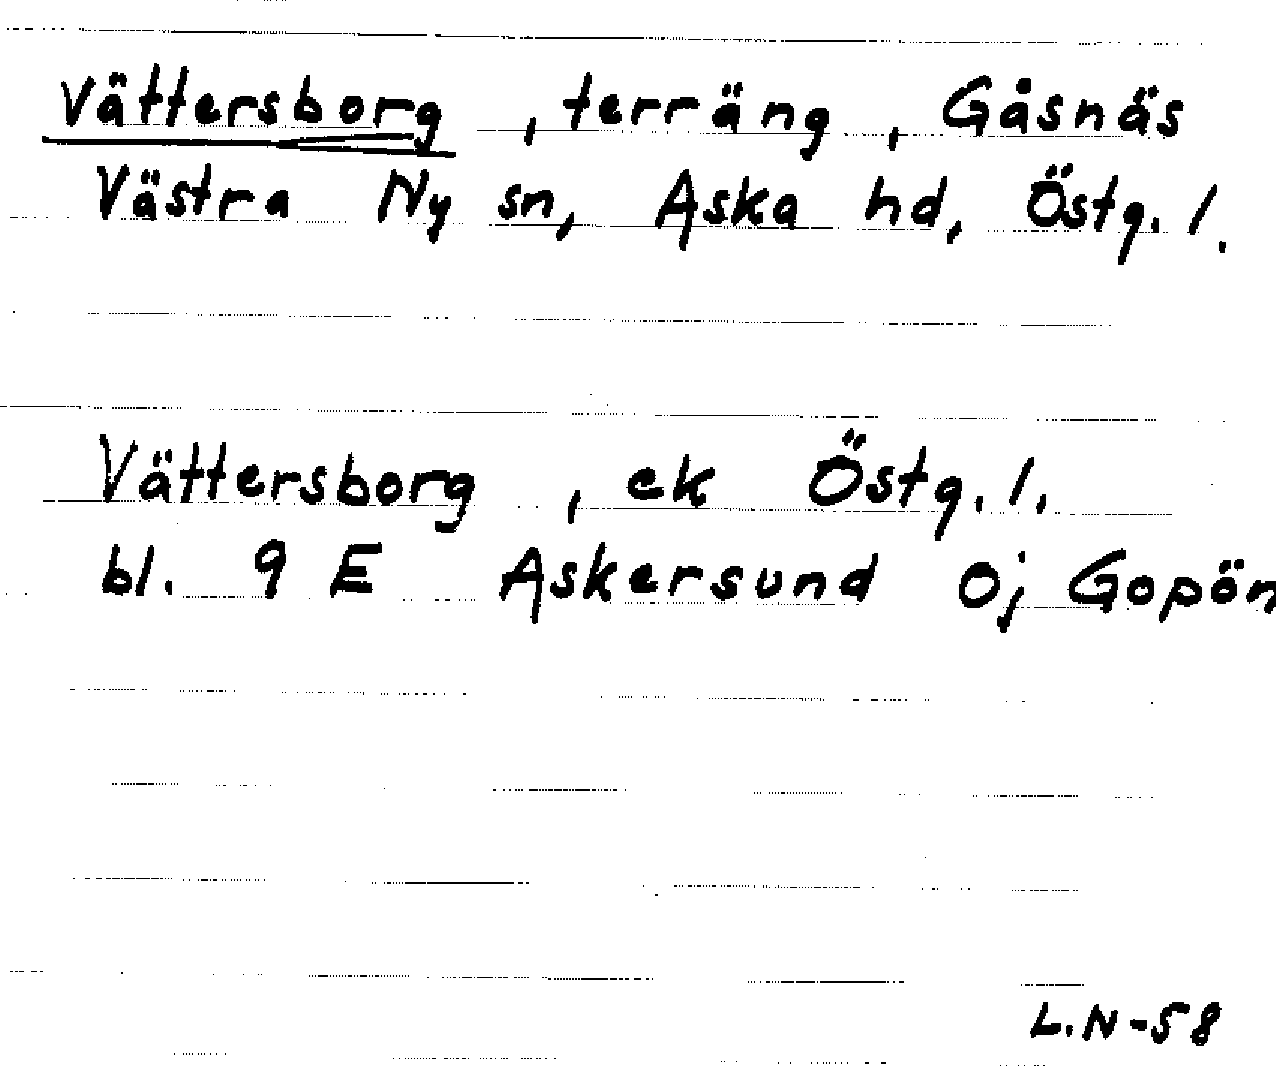 Vättersborg , terräng , Gåsnäs
Västra Ny sn, Aska hd, Östg. l.
Vättersborg , ek Östg. l.
bl. 9 E Askersund Oj Gopön
L.N-58